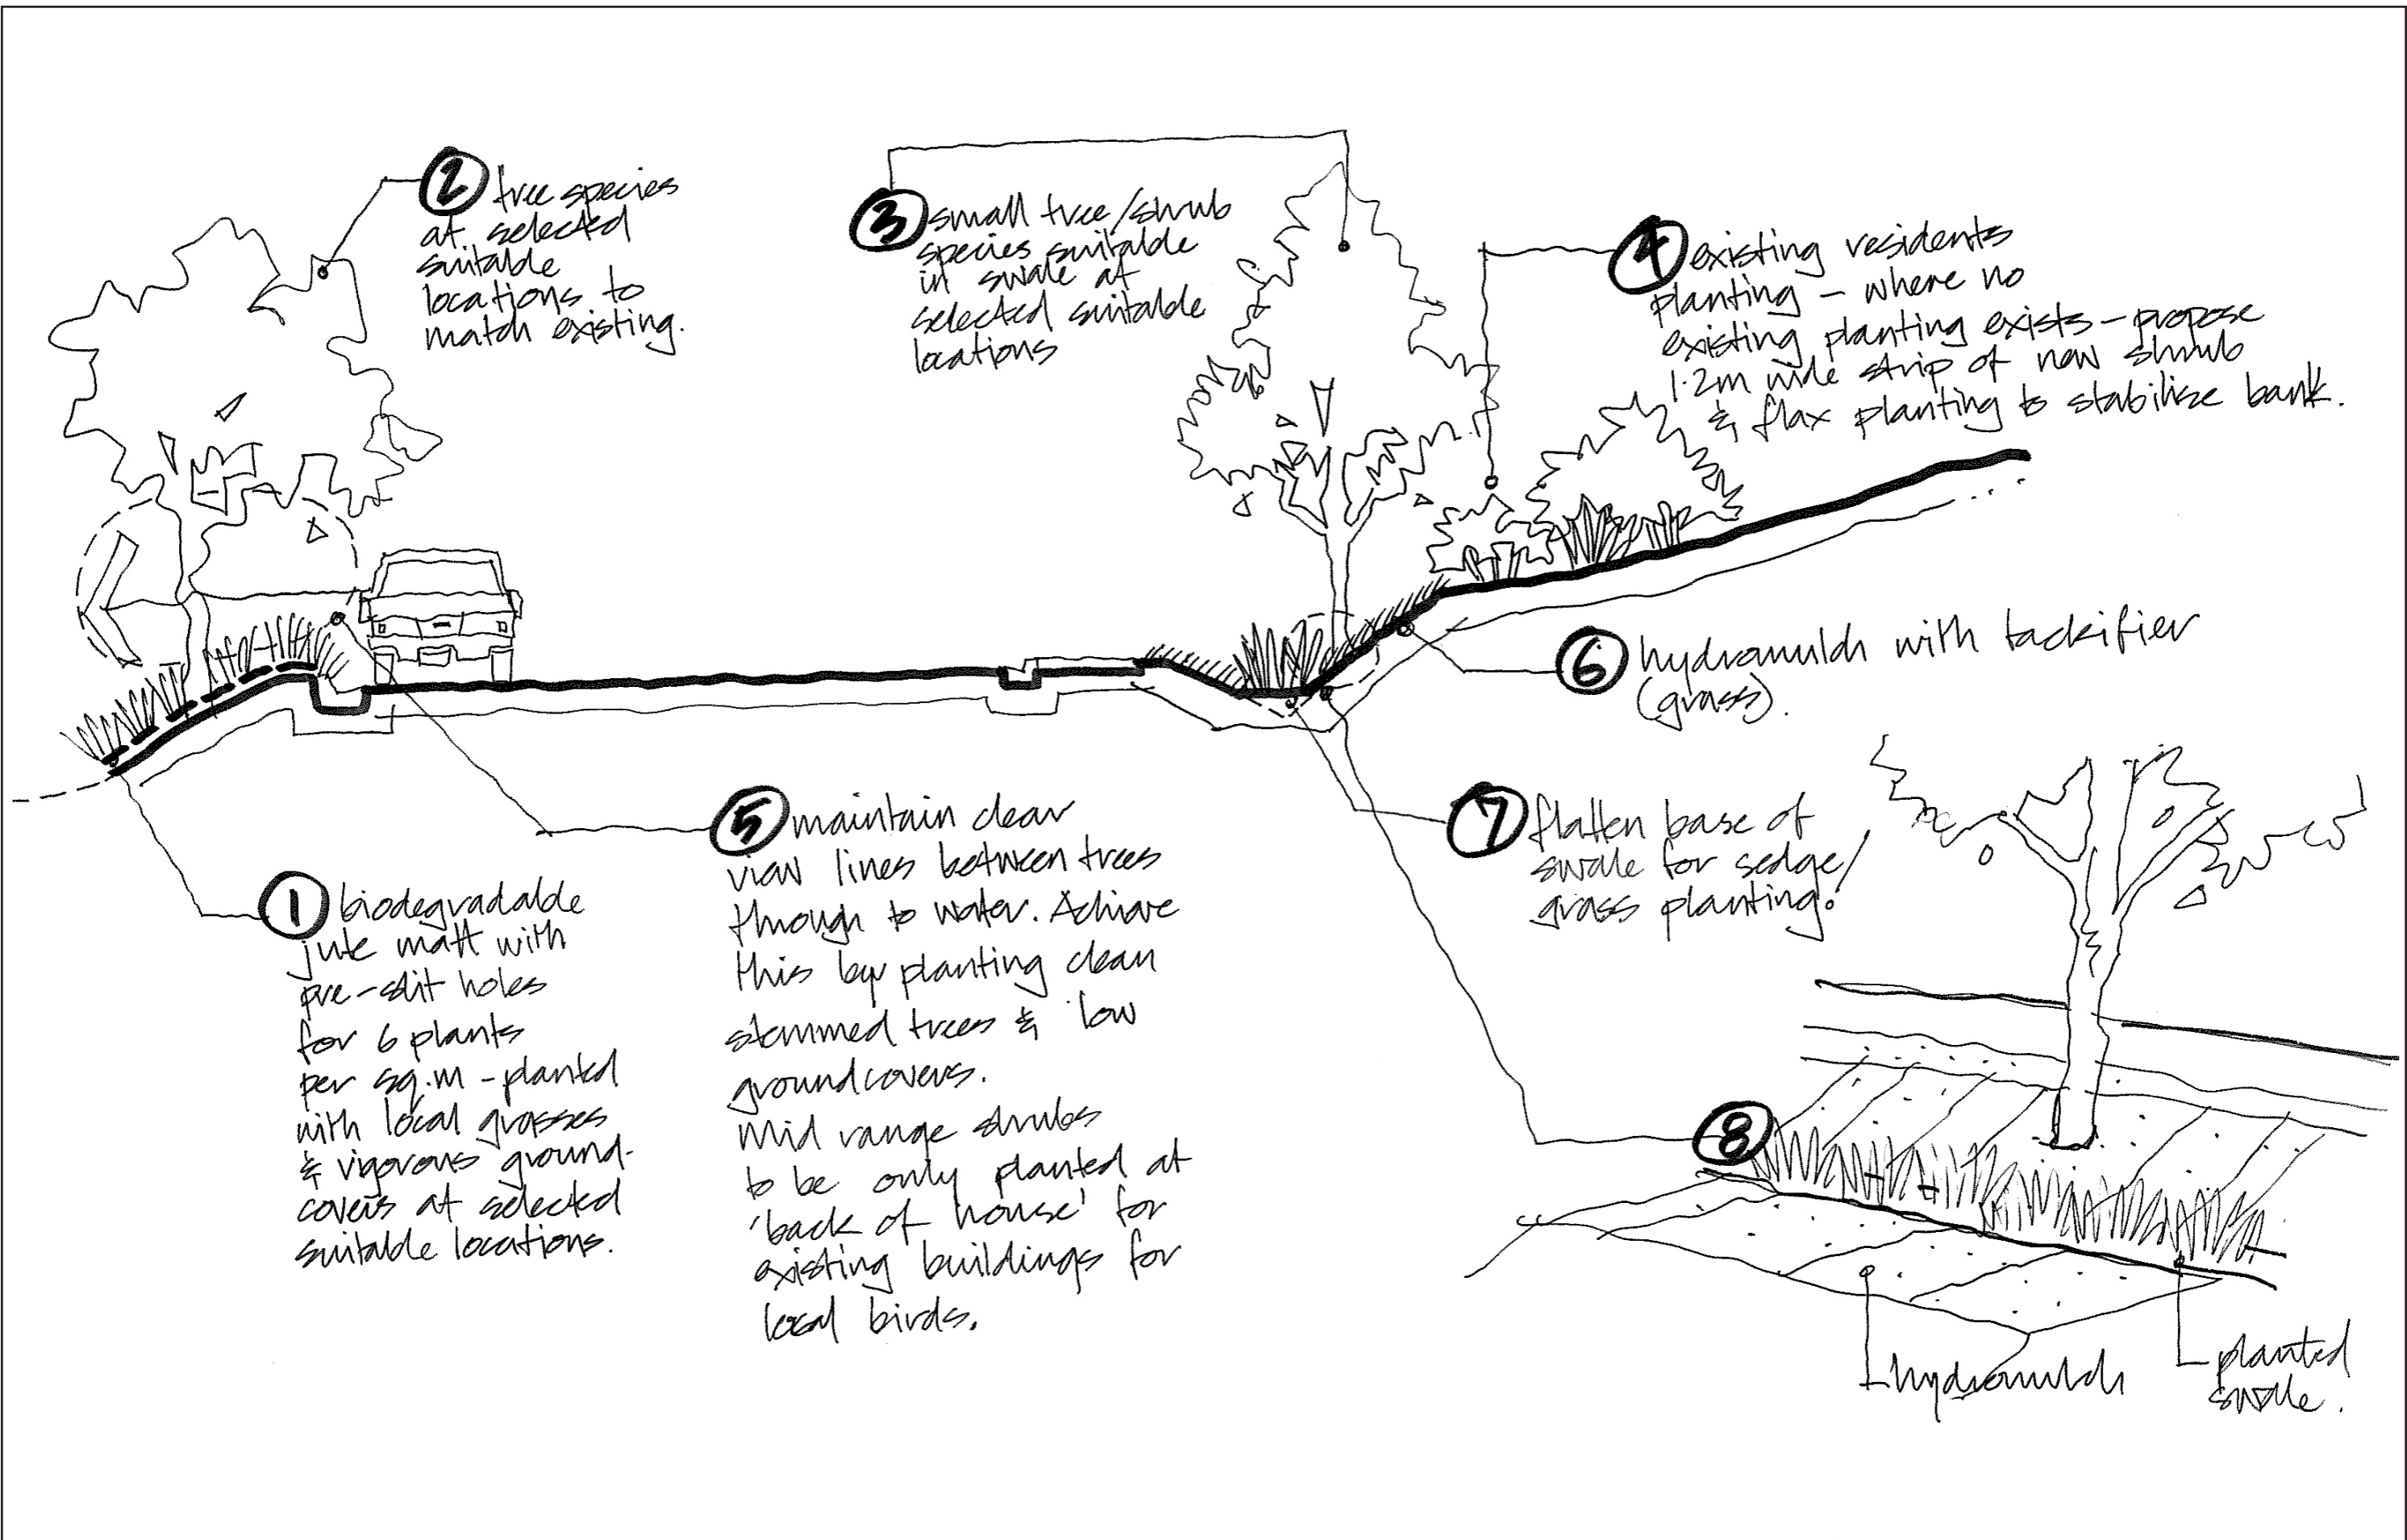 2 tree species
at selected
suitable
locations to
match existing.
3 small tree/shrub
species suitable
in swale at
selected suitable
locations
4 existing residents
planting - where no
existing planting exists - propose
1.2m wide strip of new shrub
& flax planting to stabilise bank.
6 hydromulch with tackifier
(grass).
7 flatten base of
swale for sedge/
grass planting!
5 maintain clear
view lines between trees
through to water. Achieve
this by planting clean
stemmed trees & low
groundcovers.
Mid range shrubs
to be only planted at
'back of house' for
existing buildings for
local birds.
1 biodegradable
jute matt with
pre-slit holes
for 6 plants
per sq.m - planted
with local grasses
& vigorous ground-
covers at selected
suitable locations.
8
hydromulch
planted
swale.